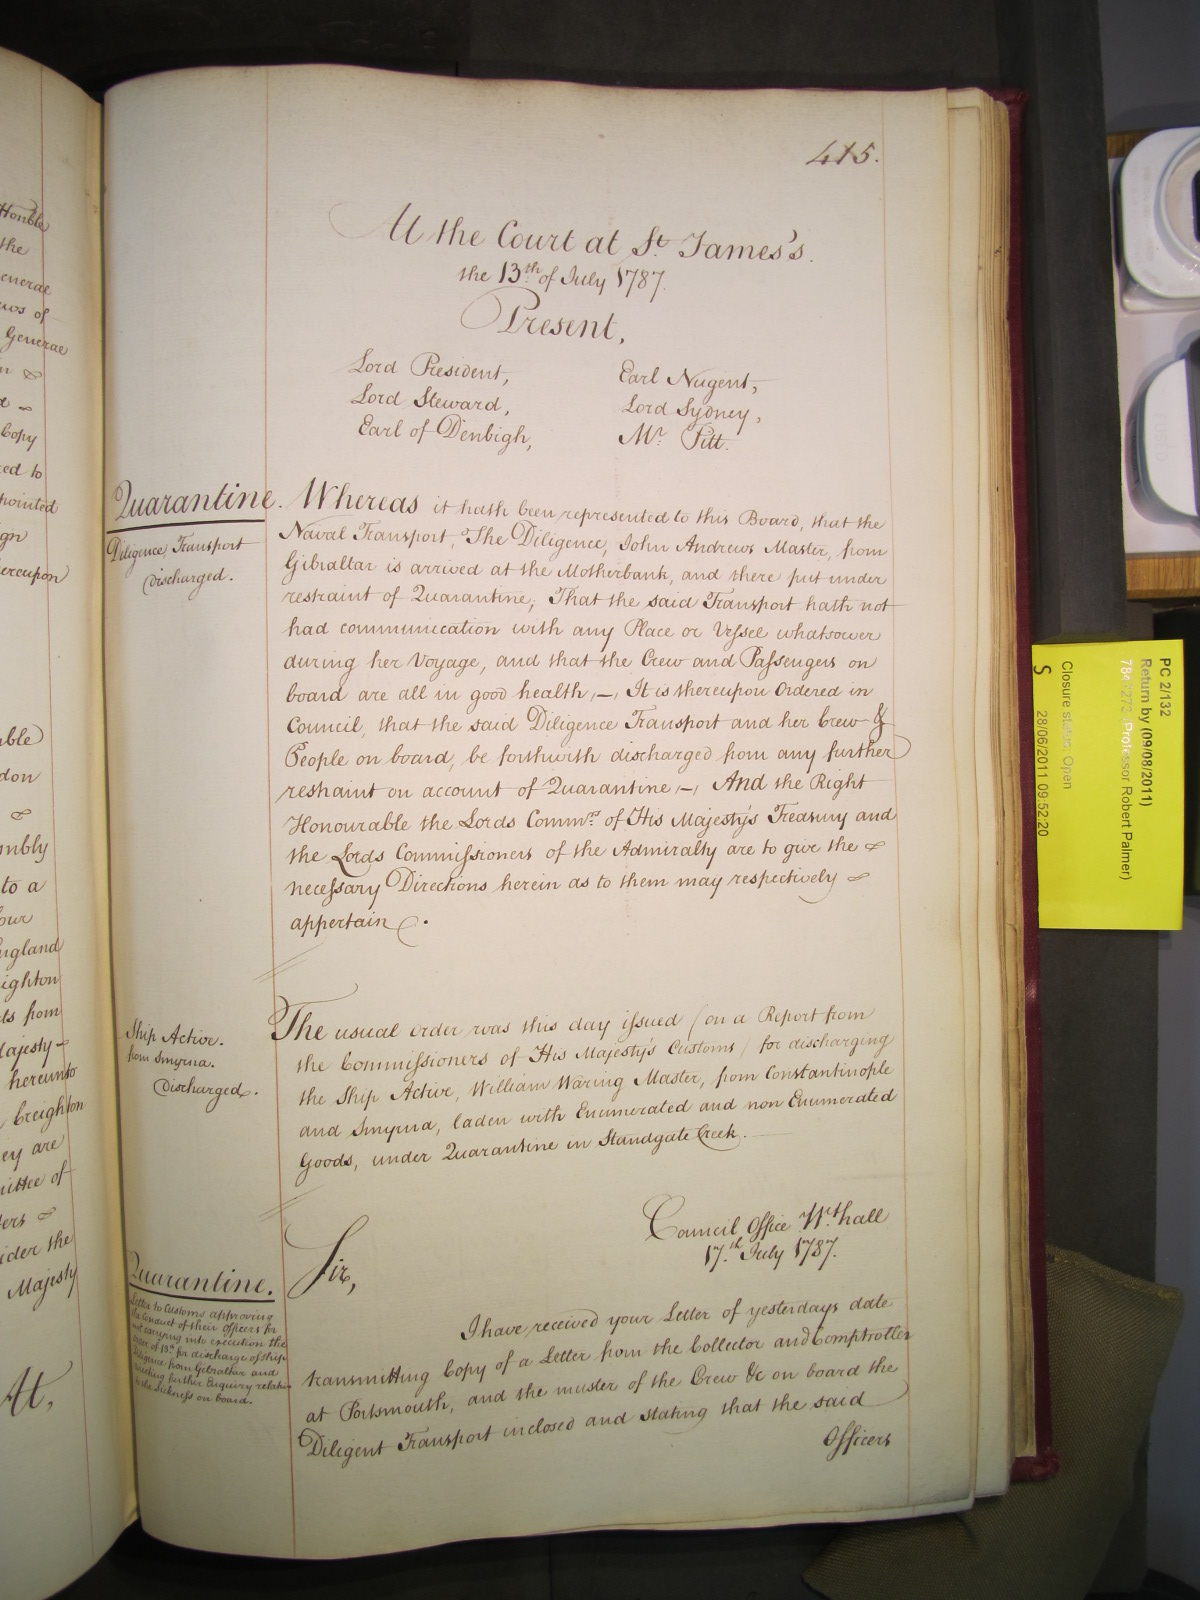 415.
At the Court at St. James's.
the 13th of July 1787.
Present,
Lord President, Earl Nugent,
Lord Steward, Lord Sydney,
Earl of Denbigh, Mr. Pitt.
Quarantine.
Diligence Transport
discharged.
Whereas it hath been represented to this Board, that the
Naval Transport, The Diligence, John Andrews Master, from
Gibraltar is arrived at the Motherbank, and there put under
restraint of Quarantine; That the said Transport hath not
had communication with any Place or Vessel whatsoever
during her Voyage, and that the Crew and Passengers on
board are all in good health,—, It is thereupon Ordered in
Council, that the said Diligence Transport and her Crew &
People on board, be forthwith discharged from any further
restraint on account of Quarantine,—, And the Right
Honourable the Lords Commrs. of His Majesty's Treasury and
the Lords Commissioners of the Admiralty are to give the
necessary Directions herein as to them may respectively
appertain.
Ship Active.
from Smyrna.
Discharged.
The usual order was this day issued (on a Report from
the Commissioners of His Majesty's Customs) for discharging
the Ship Active, William Waring Master, from Constantinople
and Smyrna, laden with Enumerated and non Enumerated
Goods, under Quarantine in Standgate Creek.
Council Office Wt.hall
17th. July 1787.
Quarantine.
Letter to Customs approving
the Conduct of their Officers for
not carrying into execution the
order of 13th for discharge of Ship
Diligence from Gibraltar and
further Enquiry relative
to the Sickness on board.
Sir,
I have received your Letter of yesterdays date
transmitting Copy of a Letter from the Collector and Comptroller
at Portsmouth, and the muster of the Crew &c on board the
Diligent Transport inclosed and stating that the said
Officers
Honble
the
General
of
General
Copy
ed to
pointed
ereupon
able
don
mbly
to a
our
England
eighton
ts from
Majesty
hereunto
Creighton
ey are
mittee of
ers
ider the
Majesty
At,
PC 2/132
Return by (09/08/2011)
Professor Robert Palmer)
Closure status: Open
S
28/06/2011 09:52:20